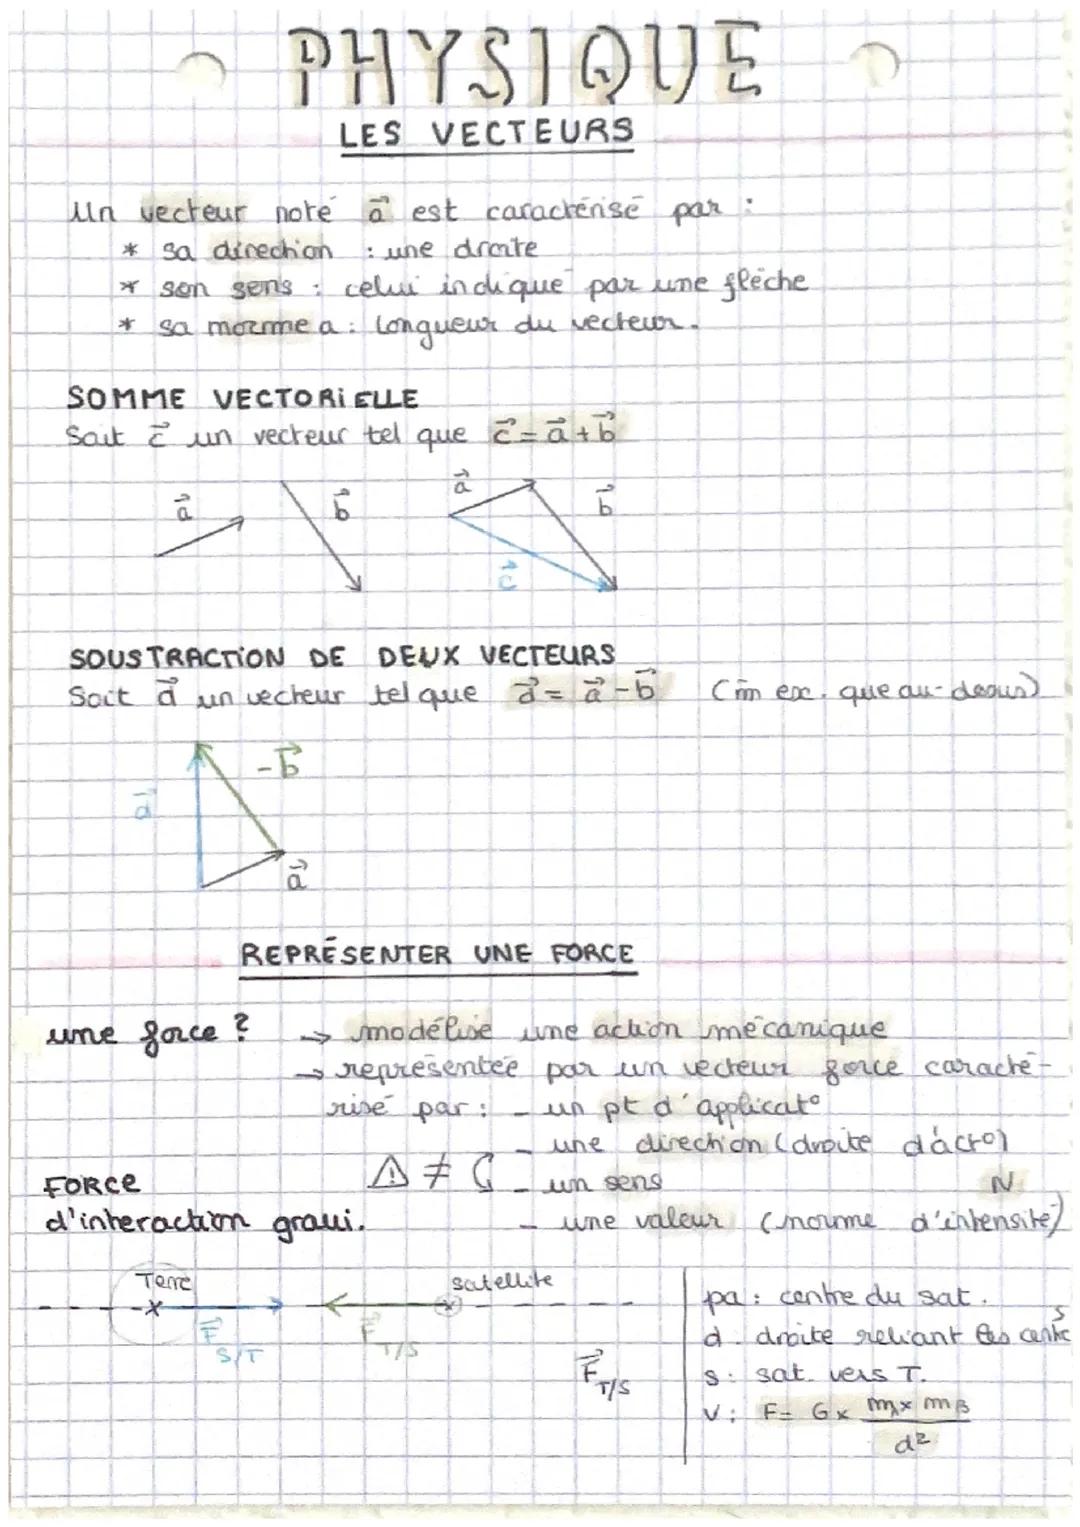 PHYSIQUE
LES VECTEURS
Un vecteur noté a⃗ est caractérisé par :
* sa direction : une droite
* son sens : celui indiqué par une flèche
* sa norme a : longueur du vecteur.
SOMME VECTORIELLE
Soit c⃗ un vecteur tel que c⃗ = a⃗ + b⃗
a⃗ b⃗ a⃗ b⃗
c⃗
SOUSTRACTION DE DEUX VECTEURS
Soit d⃗ un vecteur tel que d⃗ = a⃗ - b⃗ (m̄ ex. que au-dessus)
-b⃗
d⃗
a⃗
REPRÉSENTER UNE FORCE
une force ? → modélise une action mécanique
→ représentée par un vecteur force caracté-
risé par : - un pt d'applicat°
- une direction (droite d'act°)
⚠ ≠ - un sens N
FORCE
d'interaction gravi. - une valeur (norme d'intensité)
Terre satellite
F⃗ S/T F⃗ T/S
F⃗ T/S
pa : centre du sat.
d : droite reliant les centres
s : sat. vers T.
V : F = G × mA × mB / d²